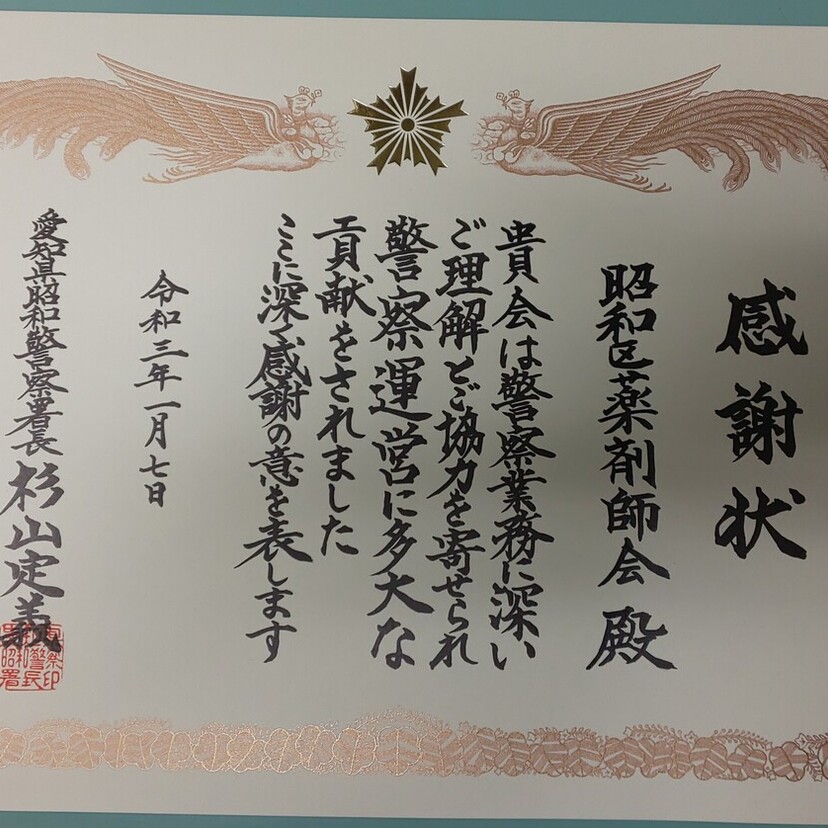 感謝状
昭和区薬剤師会 殿
貴会は警察業務に深い
ご理解とご協力を寄せられ
警察運営に多大な
貢献をされました
ここに深く感謝の意を表します
令和三年一月七日
愛知県昭和警察署長 杉山定義